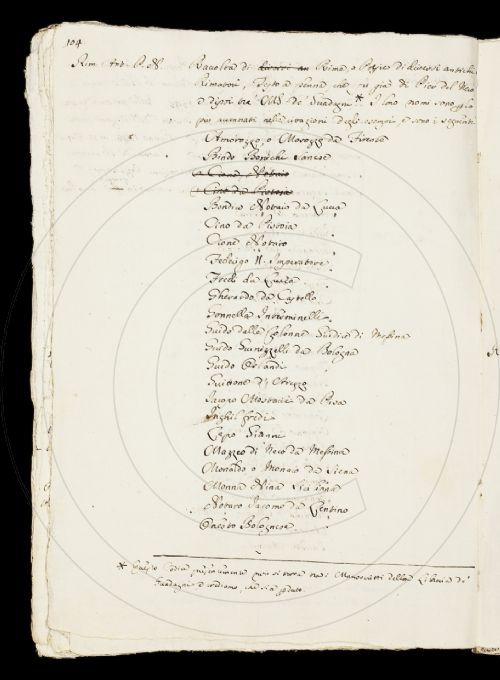 104
Rim. Ant. P. N. Raccolta di Rime, o Poesie di diversi antichi
Rimatori, Testo a penna che fu già di Pier del Nero
e dipoi tra' MSS. de' Guadagni.* I loro nomi sono
nelle citazioni degli esempi, e sono i seguenti
Amorozzo, o Morozzo da Firenze
Bindo Bonichi Sanese
Cione Notaio
Cino da Pistoia
Bondie Notaio da Lucca
Cino da Pistoia
Cione Notaio
Federigo II. Imperatore
Fredi da Lucca
Gherardo da Castello
Gonnella Interminelli
Guido delle Colonne Giudice di Messina
Guido Guinizzelli da Bologna
Guido Orlandi
Guittone d'Arezzo
Jacopo Mostacci da Pisa
Inghilfredi
Lapo Gianni
Mazzeo di Rico da Messina
Monaldo o Monaco da Siena
Monna Nina Siciliana
Notaro Jacomo da Lentino
Onesto Bolognese
* Questo Codice non si trova tra i Manoscritti della Libreria de'
Guadagni e crediamo, che sia perduto.